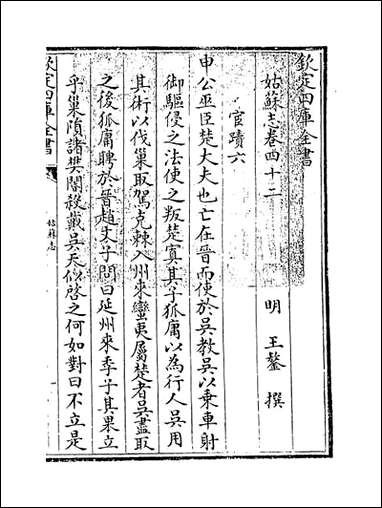 欽定四庫全書
姑蘇志卷四十二
明 王鏊 撰
宦蹟六
申公巫臣楚大夫也亡在晉而使於吳教吳以乗車射
御驅侵之法使之叛楚寘其子狐庸以為行人吳用
其術以伐巢取駕克棘入州來蠻夷屬楚者吳盡取
之後狐庸聘於晉趙文子問曰延州來季子其果立
乎巢隕諸樊閽殺戴吳天似啓之何如對曰不立是
欽定四庫全書
姑蘇志